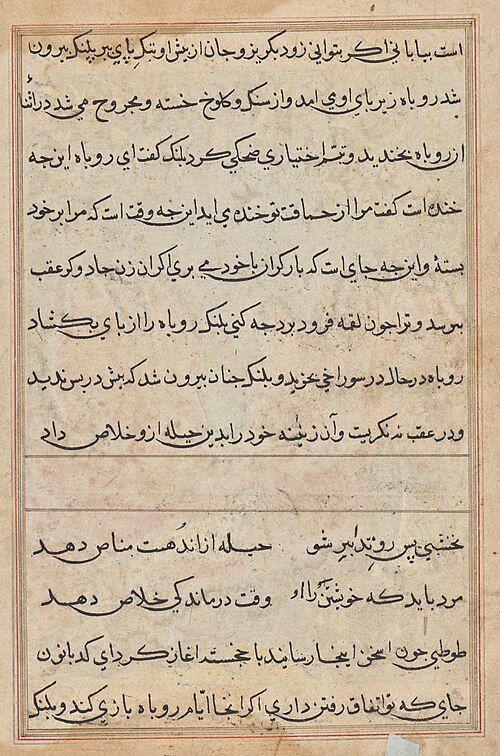 است بیابانی اکر بتوانی زود بکریز و جان از پیش او بتک پای ببر پلنک بیرون
شد روباه زیر پای او می امد و از سنک و کلوخ خسته و مجروح می شد در اثنا
ان روباه بخندید و تبرا ختیاری ضحکی کرد پلنک کفت ای روباه این چه
خنده است کفت مرا از حماقت تو خنده می اید این چه وقت است که مرا بر خود
بستۀ و این چه جای است که بار کران با خود می بری اکر ان زن جادو کر عقب
برسد و ترا چون لقمه فرود برد چه کنی پلنک روباه را از پای بکشاد
روباه در حال در سوراخی خزید و پلنک چنان بیرون شد که پیش در پس ندید
و در عقب نه نکریت و آن زنینه خود را بدین حیله ازو خلاص داد
نخشبی پس رو تدابیر شو حیله از اندهت مناص دهد
مرد باید که خویشتن را او وقت درماندکی خلاص دهد
طوطی چون سخن اینجا رسانید با خجسته اغاز کرد ای کدبانو ن
جای که تو اتفاق رفتن داری اکر انجا ایام روباه بازی کند و پلنک